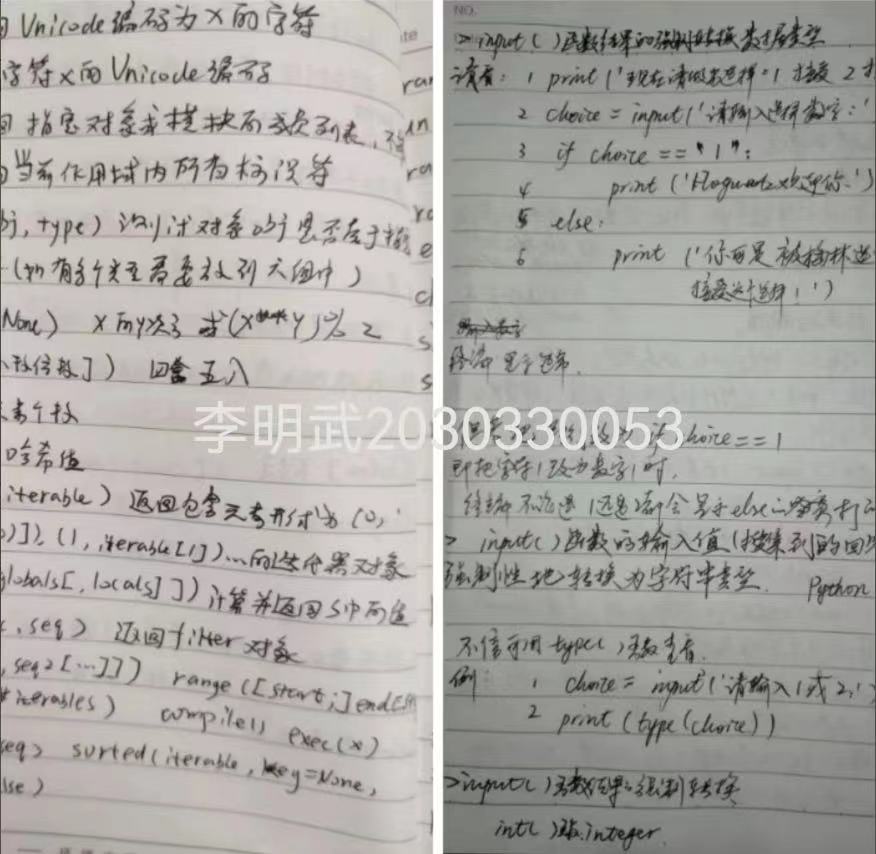 Unicode编码为x的字符
字符x的Unicode编码
指定对象或模块的成员列表，
当前作用域内所有标识符
obj, type) 测试对象obj是否属于
(如有多个类型需要放到元组中)
None) x的y次方 或(x**y)% z
]) 四舍五入
个数
哈希值
iterable) 返回包含元素形式为 (0,
)]), (1, iterable[1])...的迭代器对象
globals[, locals]]) 计算并返回S中的值
, seq) 返回filter对象
, seq2 [...]]) range([start,]end[
iterables) compile() exec(x)
seq) sorted(iterable, key=None,
lse)
NO.
>input()函数结果的强制转换 数据类型
读者: 1 print('现在请做出选择:1 接受 2
2 choice = input('请输入选择数字:'
3 if choice == "1":
4 print('Hogwarts欢迎你.')
5 else:
6 print ('你可是被格林
接受这个选择！')
终端 显示
if choice == 1
即把字符1改为数字1时，
终端不论选1还是2都会显示else
> input()函数的输入值(搜集到的回
强制性地转换为字符串类型. Python
不信可用type()函数查看.
例: 1 choice = input('请输入1或2:'
2 print(type(choice))
>input()函数结果的强制转换
int() integer.
李明武2030330053